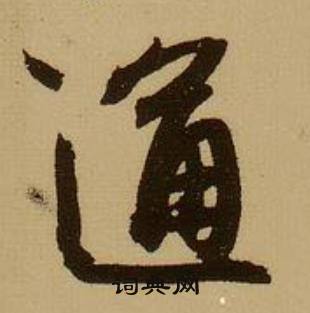 通
词典网